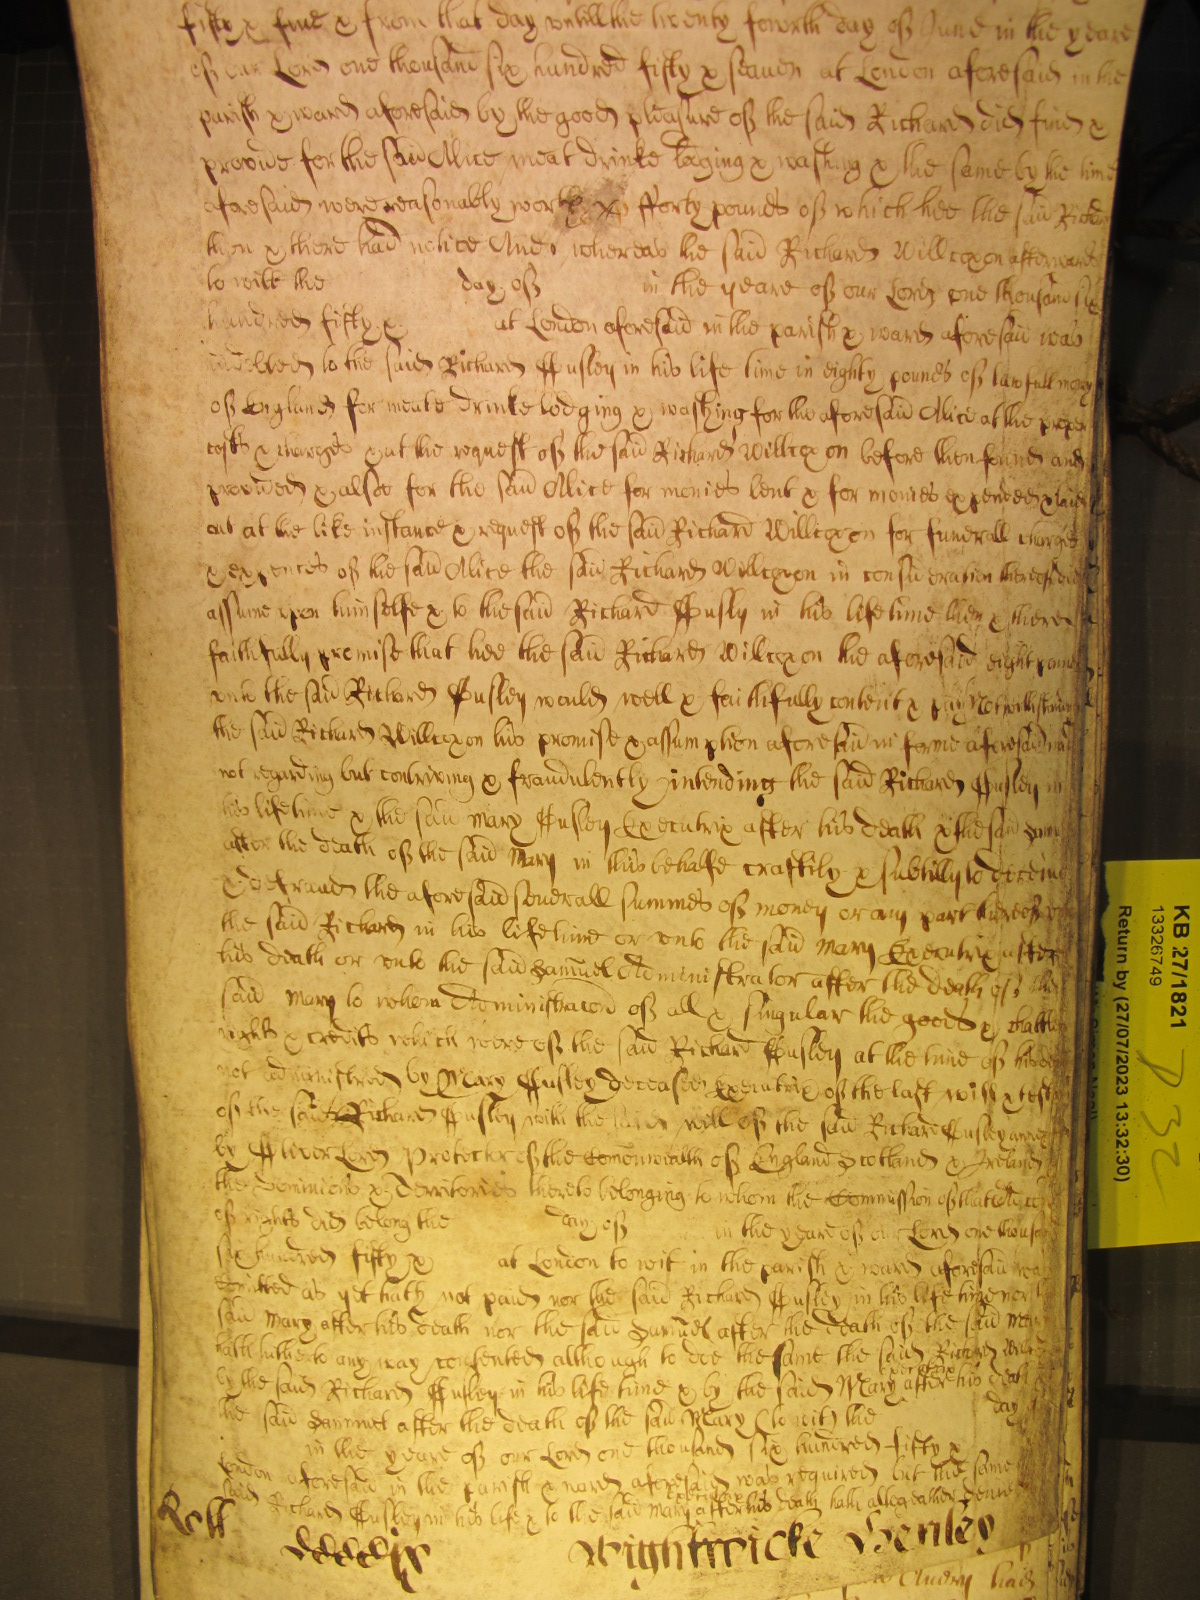 fifty & five & from that day untill the twenty fowrth day of June in the yeare
of our Lord one thousand six hundred fifty & seaven at London aforesaid in the
parish & ward aforesaid by the good pleasure of the said Richard did find &
provide for the said Alice meat drinke lodging & washing & the same by the time
aforesaid were reasonably worth fforty pounds of which hee the said Richard
then & there had notice And whereas the said Richard Willcoxon afterwards
to witt the day of in the yeare of our Lord one thousand six
hundred fifty & at London aforesaid in the parish & ward aforesaid was
indebted to the said Richard Pusley in his life time in eighty pounds of lawfull money
of England for meate drinke lodging & washing for the aforesaid Alice at the proper
costs & charges & at the request of the said Richard Willcoxon before then found and
provided & alsoe for the said Alice for monies lent & for monies expended & laid
out at the like instance & request of the said Richard Willcoxon for funerall charges
& expences of the said Alice the said Richard Willcoxon in consideration thereof did
assume upon himselfe & to the said Richard Pusly in his life time then & there
faithfully promise that hee the said Richard Willcoxon the aforesaid eighty pounds
unto the said Richard Pusley would well & faithfully content & pay Notwithstanding
the said Richard Willcoxon his promise & assumption aforesaid in forme aforesaid
not regarding but contriving & fraudulently intending the said Richard Pusley in
his life time & the said Mary Pusley Executrix after his death & the said
after the death of the said Mary in this behalfe craftily & subtilly to deceive
& defraud the aforesaid severall summes of money or any part thereof
the said Richard in his life time or unto the said Mary Executrix after
his death or unto the said Samuel Administrator after the death of the
said Mary to whom Administracon of all & singular the goods & chattles
rights & credits which were of the said Richard Pusley at the time of his
not administred by Mary Pusley deceased Executrix of the last will & test
of the said Richard Pusley with the will of the said Richard Pusley annexed
by Oliver Lord Protector of the Comonwealth of England Scotland & Ireland
the Dominions & Territories thereto belonging to whom the Commission of that
of right did belong the day of in the yeare of our Lord one thousand
six hundred fifty & at London to wit in the parish & ward aforesaid was
comitted as yet hath not paid nor the said Richard Pusley in his life time nor
said Mary after his death nor the said Samuel after the death of the said Mary
hath hitherto any way contented although to doe the same the said Richard
by the said Richard Pusley in his life time & by the said Mary executrix after his death
the said Sammuel after the death of the said Mary (to wit) the day
in the yeare of our Lord one thousand six hundred fifty &
London aforesaid in the parish & ward aforesaid was required but the same
said Richard Pusley in his life & to the said Mary executrix after his death hath altogeather
Roll
Wightwicke Henley
KB 27/1821
13326749
Return by (27/07/2023 13:32:30)